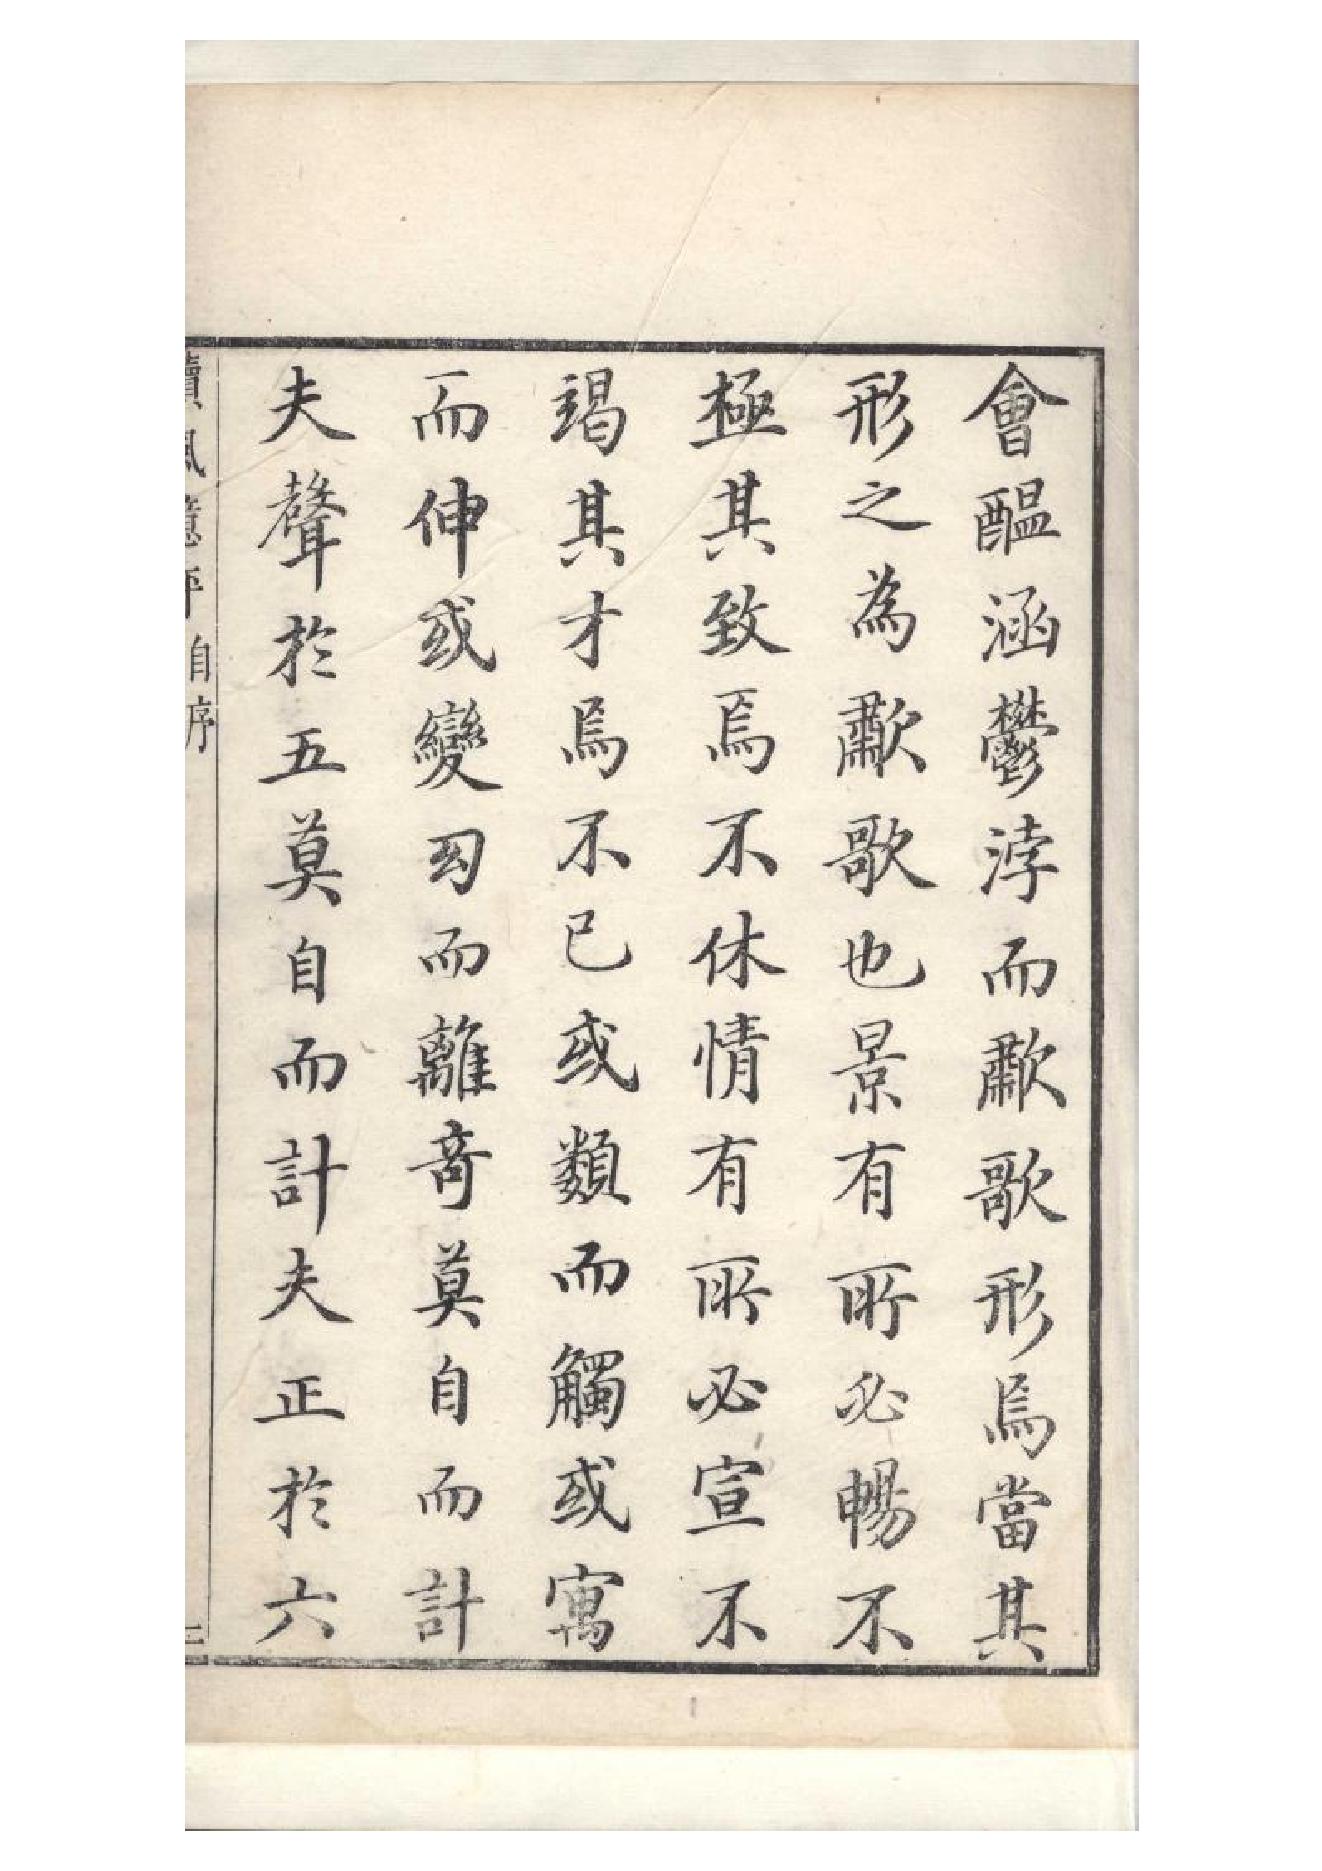 會醞涵鬱浡而歗歌形焉當其
形之為歗歌也景有所必暢不
極其致焉不休情有所必宣不
竭其才焉不已或類而觸或寓
而伸或變幻而離奇莫自而計
夫聲於五莫自而計夫正於六
讀風臆評 自序